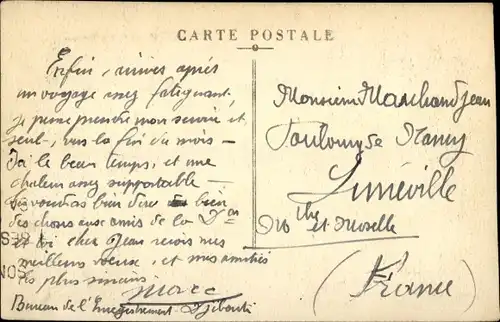 CARTE POSTALE
Enfin, arrivé après
un voyage assez fatiguant,
je pense prendre mon service et
seul, vers la fin du mois –
J'ai le beau temps, et une
chaleur assez supportable –
voudras bien dire bien
des choses aux amis de la
et toi cher Jean reçois mes
meilleurs voeux, et mes amitiés
les plus sincères
Marc
Bureau de l'Enregistrement Djibouti
Monsieur Marchand Jean
Faubourg de Nancy
Lunéville
Mthe et Moselle
(France)